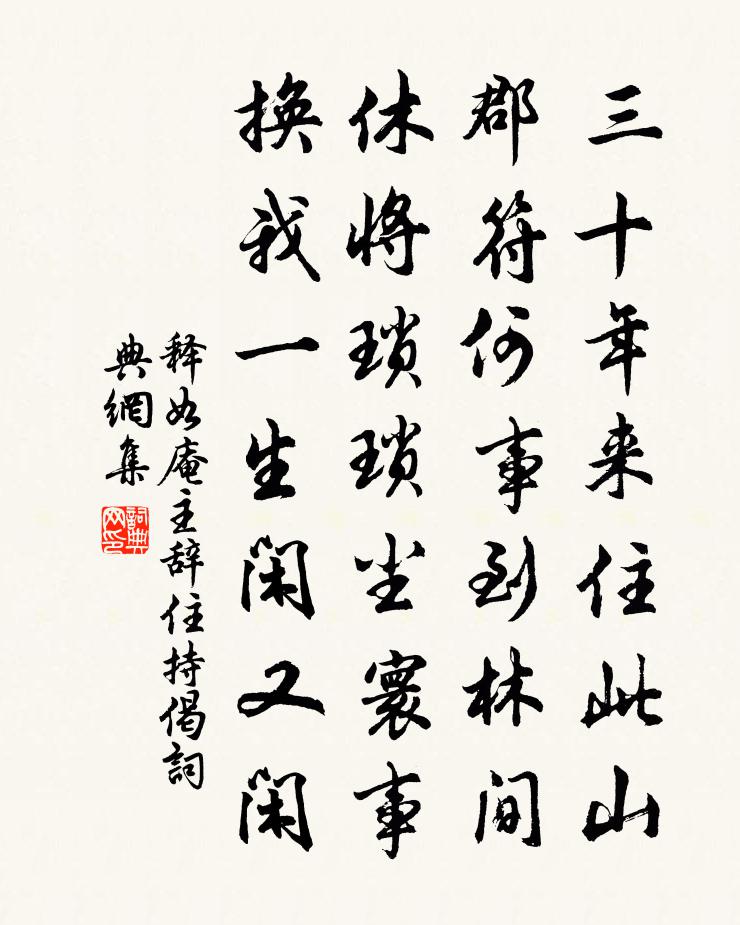 三十年来住此山
郡符何事到林间
休将琐琐尘寰事
换我一生闲又闲
释如庵主辞住持偈詞
典網集
詞典网印